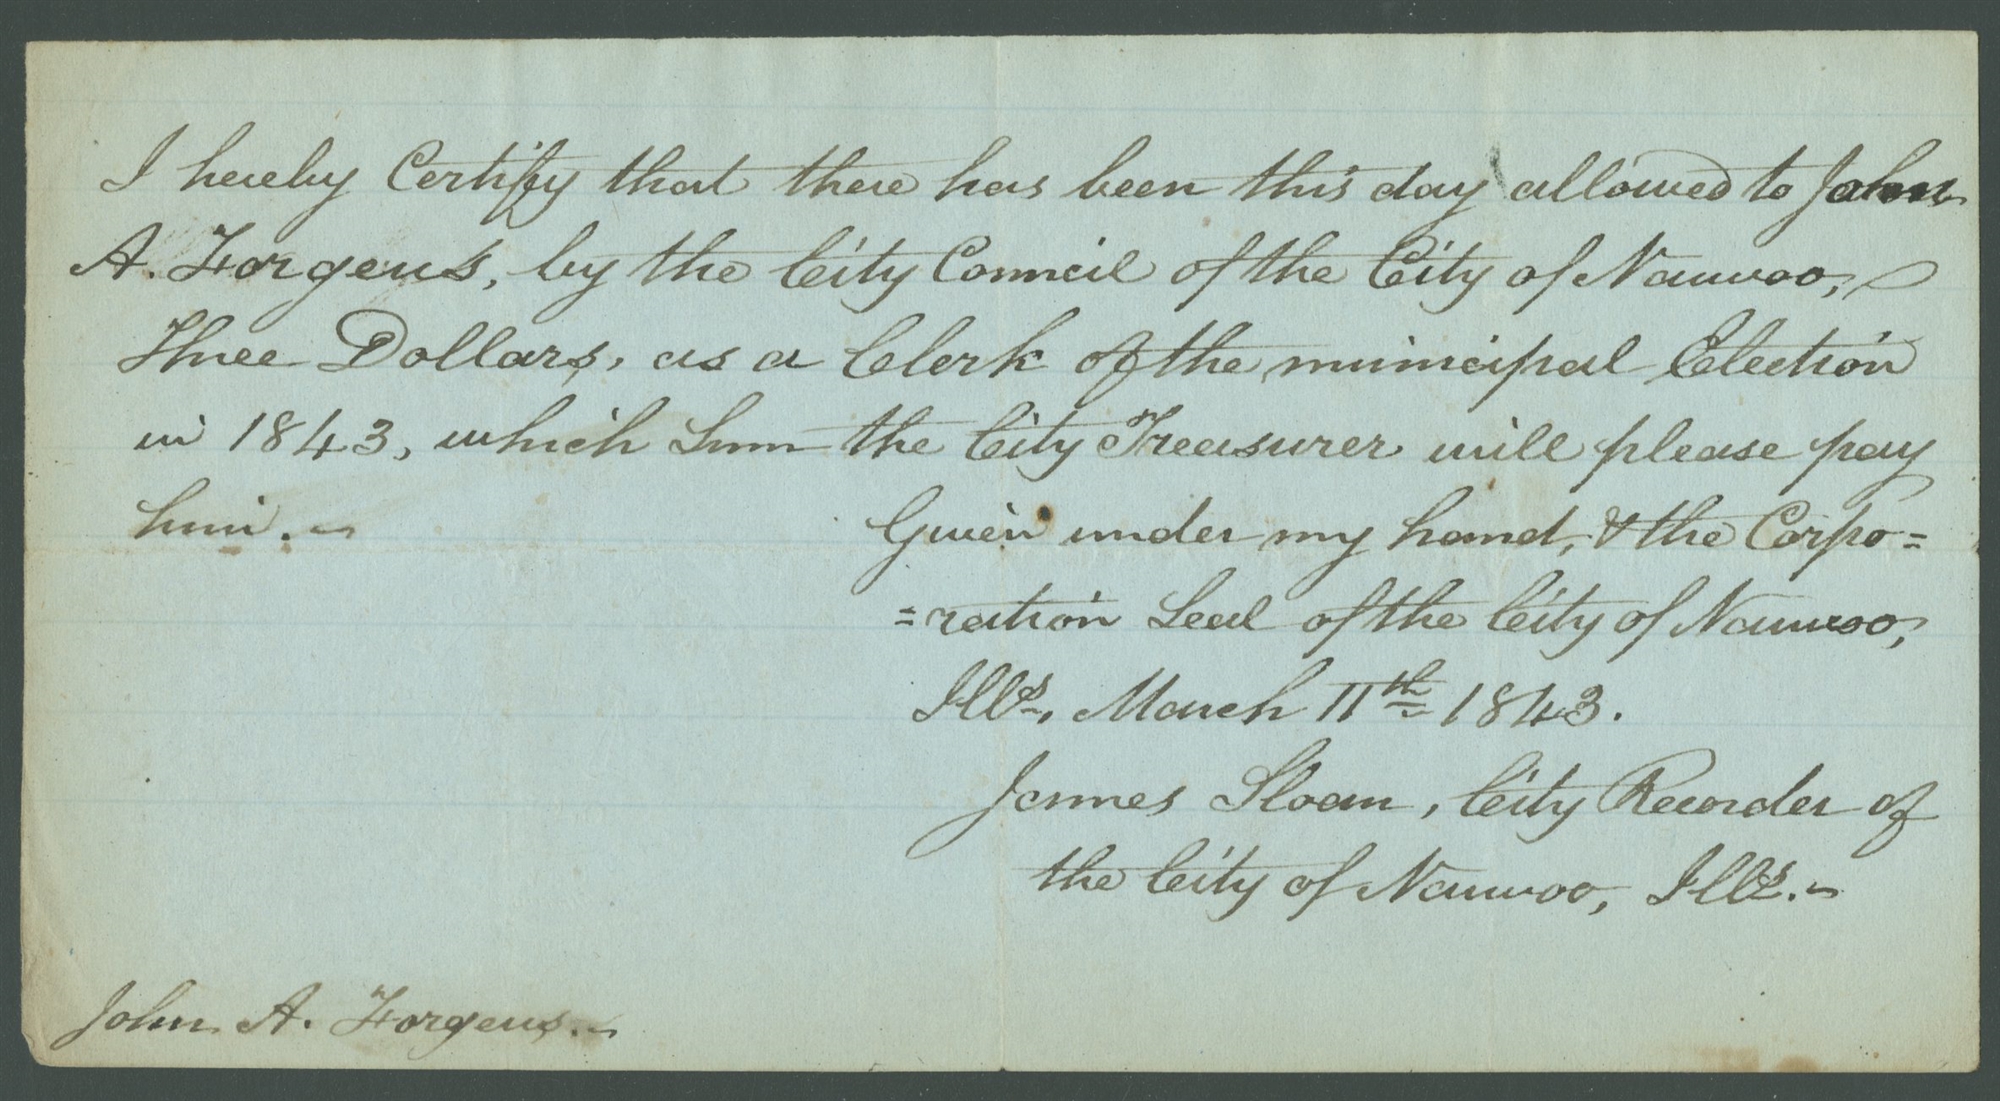 I hereby Certify that there has been this day allowed to John
A. Forgeus, by the City Council of the City of Nauvoo,
Three Dollars, as a Clerk of the municipal Election
in 1843, which Sum the City Treasurer will please pay
him.
Given under my hand, & the Corpo=
=ration Seal of the City of Nauvoo,
Ills., March 11th 1843.
James Sloan, City Recorder of
the City of Nauvoo, Ills.
John A. Forgeus.